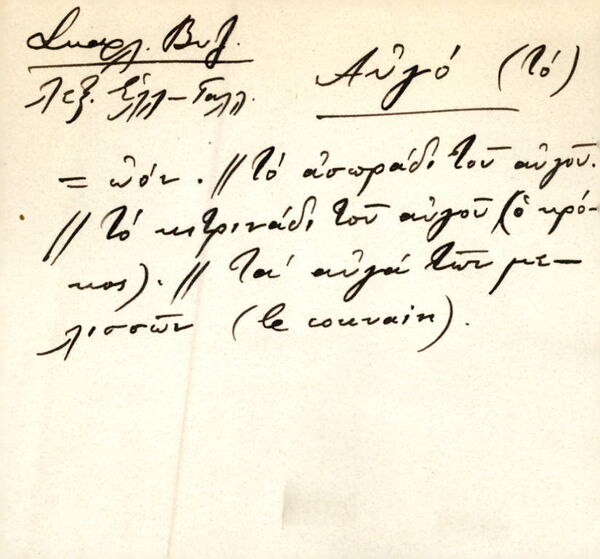 Σκαρλ. Βυζ.
Λεξ. Ἑλλ-Γαλλ.
Αὐγό (τό)
= ὠόν. // τό ἀσπράδι τοῦ αὐγοῦ.
// τό κιτρινάδι τοῦ αὐγοῦ (ὁ κρό-
κος). // Τά αὐγά τῶν με-
λισσῶν (le couvain).